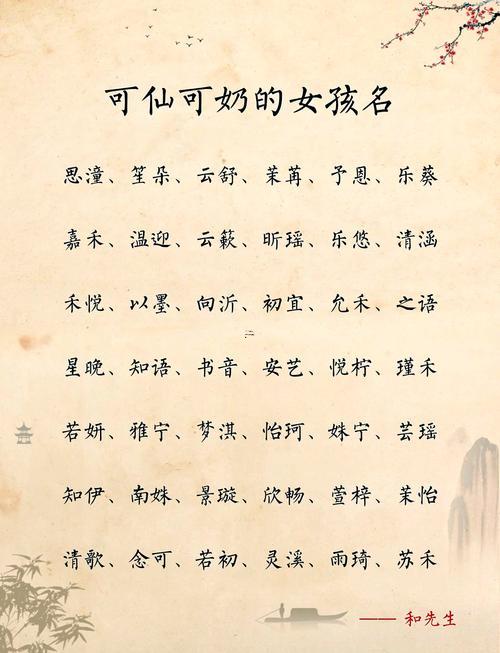 可仙可奶的女孩名
思潼、笙朵、云舒、茉苒、予恩、乐葵
嘉禾、温迎、云簌、昕瑶、乐悠、清涵
禾悦、以墨、向沂、初宜、允禾、之语
星晚、知语、书音、安艺、悦柠、瑾禾
若妍、雅宁、梦淇、怡珂、姝宁、芸瑶
知伊、南姝、景璇、欣畅、萱梓、茉怡
清歌、念可、若初、灵溪、雨琦、苏禾
—— 和先生